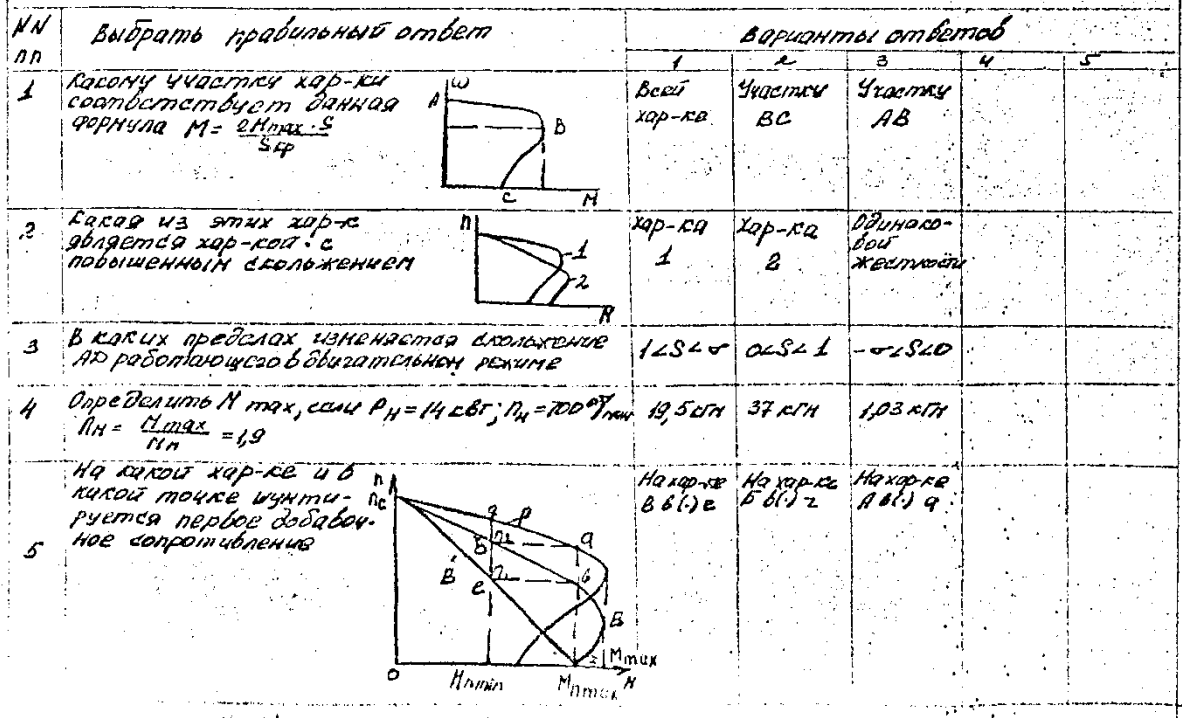 NN Выбрать правильный ответ Варианты ответов
пп 1 2 3 4 5
1 Какому участку хар-ки
соответствует данная
формула M = 2Mmax · S / Sкр
ω A B C M
Всей хар-ке
Участку BC
Участку AB
2 Какая из этих хар-к
является хар-кой с
повышенным скольжением
n 1 2 M
Хар-ка 1
Хар-ка 2
Одинако-
вой
жесткости
3 В каких пределах изменяется скольжение
АД работающего в двигательном режиме
1<S<σ
0<S<1
-σ<S<0
4 Определить M max, если Pн = 14 кВт; nн = 700 об/мин
λм = Mmax / Mн = 1,9
19,5 кГм
37 кГм
1,03 кГм
5 На какой хар-ке и в
какой точке шунти-
руется первое добавоч-
ное сопротивление
n nс
Б
В e
а
в
Б
Mmax
0 Mпmin Mпmax M
На хар-ке
В в(·) е
На хар-ке
Б в(·) г
На хар-ке
А в(·) а